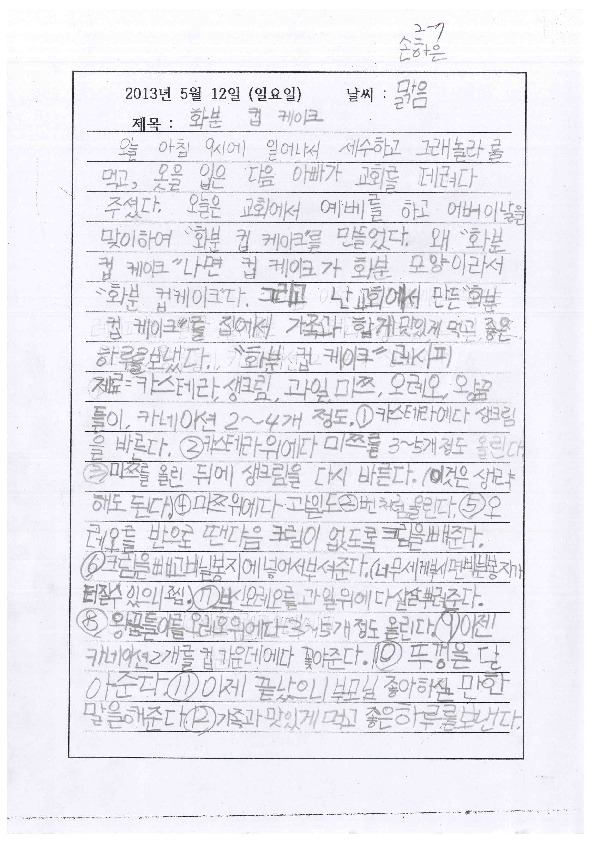 2-7
손하은
2013년 5월 12일 (일요일) 날씨 : 맑음
제목 : 화분 컵 케이크
오늘 아침 9시에 일어나서 세수하고 그래놀라를
먹고, 옷을 입은 다음 아빠가 교회를 데려다
주셨다. 오늘은 교회에서 예배를 하고 어버이날을
맞이하여 "화분 컵 케이크"를 만들었다. 왜 "화분
컵 케이크"냐면 컵 케이크가 화분 모양이라서
"화분 컵케이크"다. 그리고 난 교회에서 만든 "화분
컵 케이크"를 집에서 가족과 함께 맛있게 먹고 좋은
하루를 보냈다. "화분 컵 케이크" 레시피
재료= 카스테라, 생크림, 과일 미쯔, 오레오, 왕꿈
틀이, 카네이션 2~4개 정도. ① 카스테라에다 생크림
을 바른다. ② 카스테라 위에다 미쯔를 3~5개 정도 올린다
③ 미쯔를 올린 뒤에 생크림을 다시 바른다. (이것은 생략
해도 된다) ④ 미쯔위에다 과일도 ②번처럼 올린다. ⑤ 오
레오를 반으로 뗀다음 크림이 없도록 크림을 빼준다.
⑥ 크림을 빼고 비닐봉지에 넣어서 부셔준다. (너무 세게 부시면 비닐봉지가
터질수 있으니 조심. ⑦ 오레오를 과일 위에다 살살 뿌려준다.
⑧ 왕꿈틀이를 오레오 위에다 3~5개 정도 올린다. ⑨ 이젠
카네이션 2개를 컵 가운데에다 꽂아준다. ⑩ 뚜껑을 닫
아준다. ⑪ 이제 끝났으니 부모님 좋아하실 만한
말을 해준다. ⑫ 가족과 맛있게 먹고 좋은 하루를 보낸다.